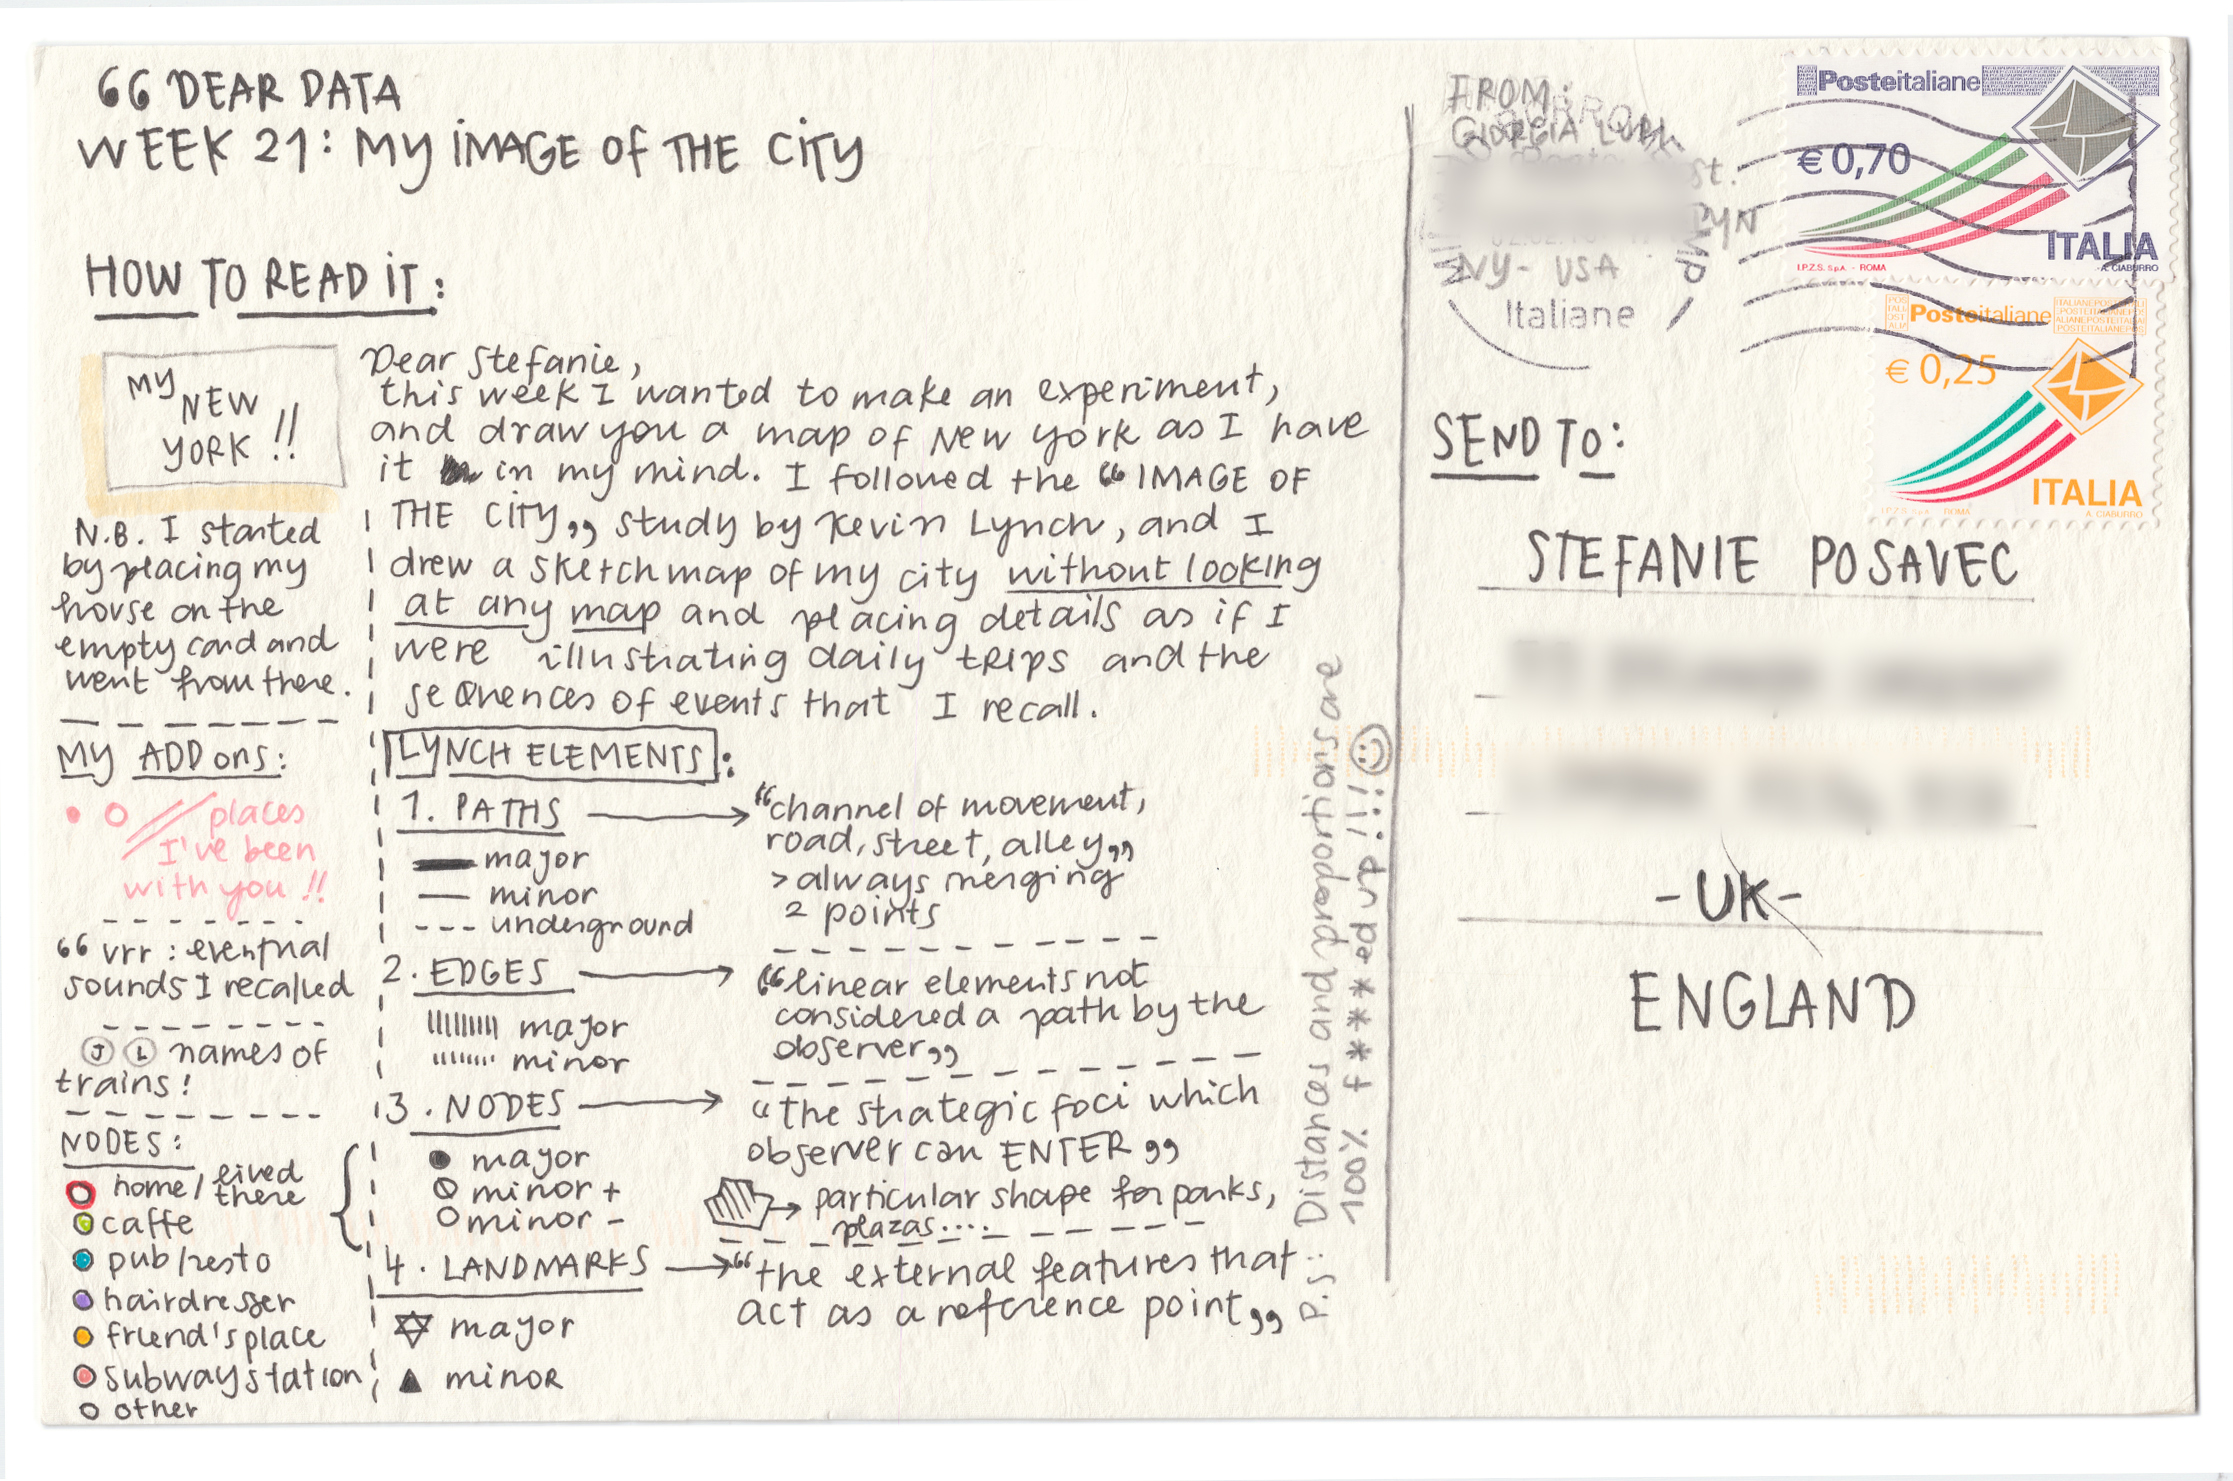 66 DEAR DATA
WEEK 21: MY IMAGE OF THE CITY
HOW TO READ IT:
MY
NEW
YORK !!
N.B. I started
by placing my
house on the
empty card and
went from there.
MY ADD ons:
places
I've been
with you !!
66 vrr : eventual
sounds I recalled
J L names of
trains!
NODES:
home/ lived
there
caffe
pub/resto
hairdresser
friend's place
subway station
other
Dear Stefanie,
this week I wanted to make an experiment,
and draw you a map of New York as I have
it in my mind. I followed the “IMAGE OF
THE CITY„ study by Kevin Lynch, and I
drew a sketch map of my city without looking
at any map and placing details as if I
were illustrating daily TRIPS and the
sequences of events that I recall.
LYNCH ELEMENTS:
1. PATHS → “channel of movement,
road, street, alley„
> always merging
2 points
major
minor
--- underground
2. EDGES → “linear elements not
considered a path by the
observer„
major
minor
3. NODES → “the strategic foci which
observer can ENTER„
mayor
minor +
minor -
→ particular shape for parks,
plazas....
4. LANDMARKS → “the external features that
act as a reference point„
mayor
minor
P.S.: Distances and proportions are
100% f**** ed up!!! ☺
FROM:
GIORGIA LUPI
st.
NY - USA
Italiane
Posteitaliane
€ 0,70
ITALIA
I.P.Z.S. S.p.A. - ROMA
A. CIABURRO
Posteitaliane
€ 0,25
ITALIA
I.P.Z.S. S.p.A. - ROMA
A. CIABURRO
SEND TO:
STEFANIE POSAVEC
-UK-
ENGLAND